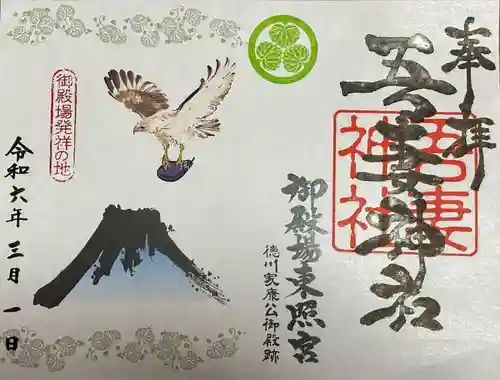 奉拝
吾妻神社
吾妻神社
御殿場東照宮
徳川家康公御殿跡
御殿場発祥の地
令和六年三月一日